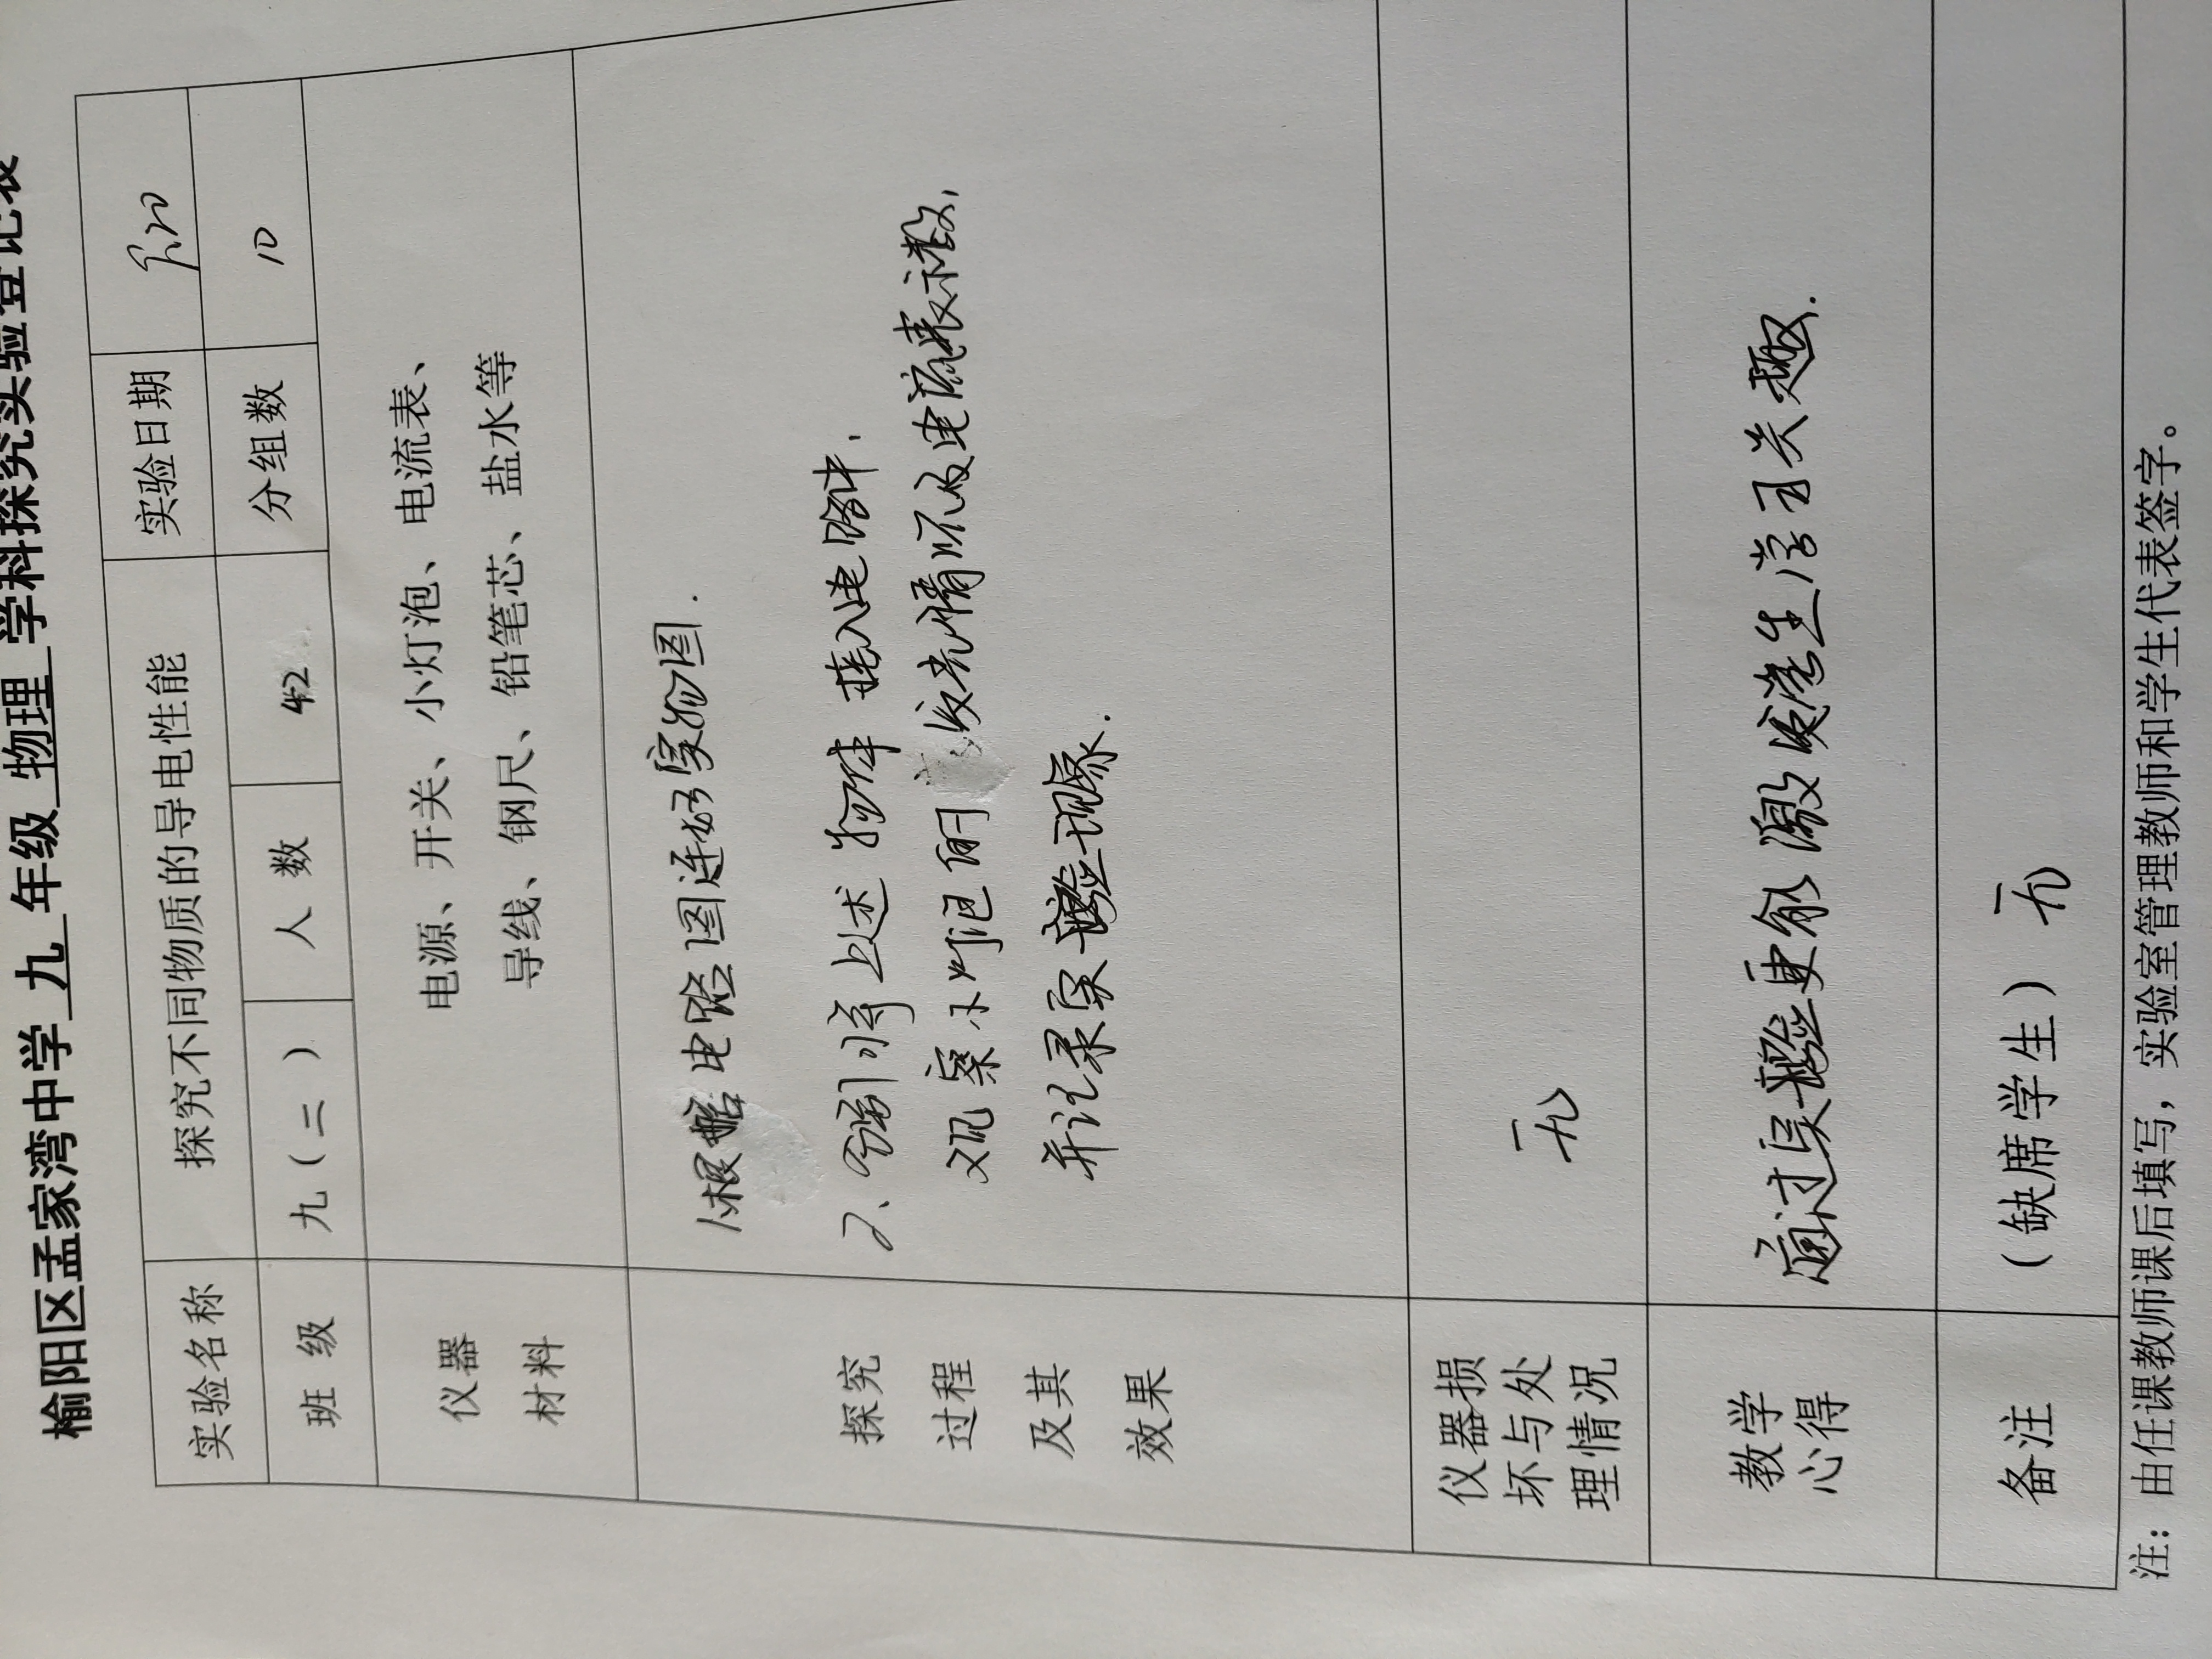 榆阳区孟家湾中学 九 年级 物理 学科探究实验登记表
实验名称 探究不同物质的导电性能 实验日期
班 级 九(二) 人 数 42 分组数 10
仪器
材料
电源、开关、小灯泡、电流表、
导线、钢尺、铅笔芯、盐水等
探究
过程
及其
效果
1.根据电路图连好实物图.
2、分别将上述物体接入电路中.
观察小灯泡的发光情况及电流表示数,
并记录实验现象.
仪器损
坏与处
理情况
无
教学
心得
通过实验更能激发学生学习兴趣.
备注
(缺席学生) 无
注：由任课教师课后填写，实验室管理教师和学生代表签字。